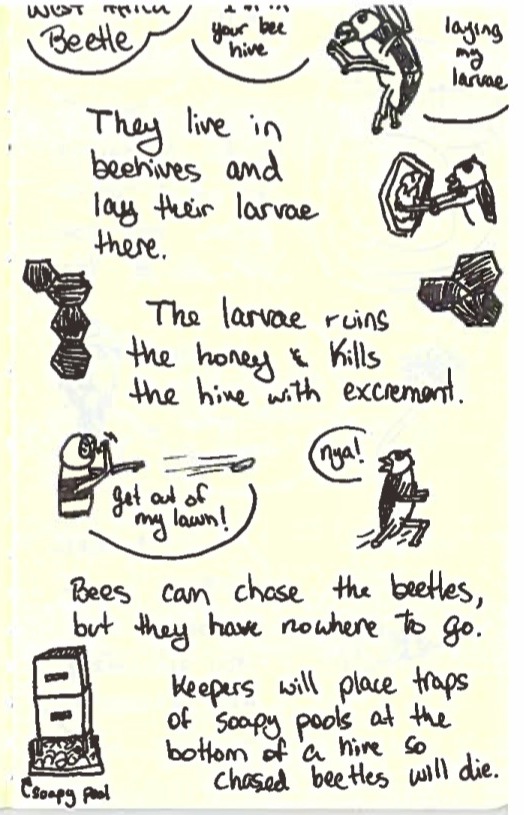 Beetle
your bee
hive
laying
my
larvae
They live in
beehives and
lay their larvae
there.
The larvae ruins
the honey & kills
the hive with excrement.
nya!
get out of
my lawn!
Bees can chase the beetles,
but they have nowhere to go.
Keepers will place traps
of soapy pools at the
bottom of a hive so
chased beetles will die.
soapy pool